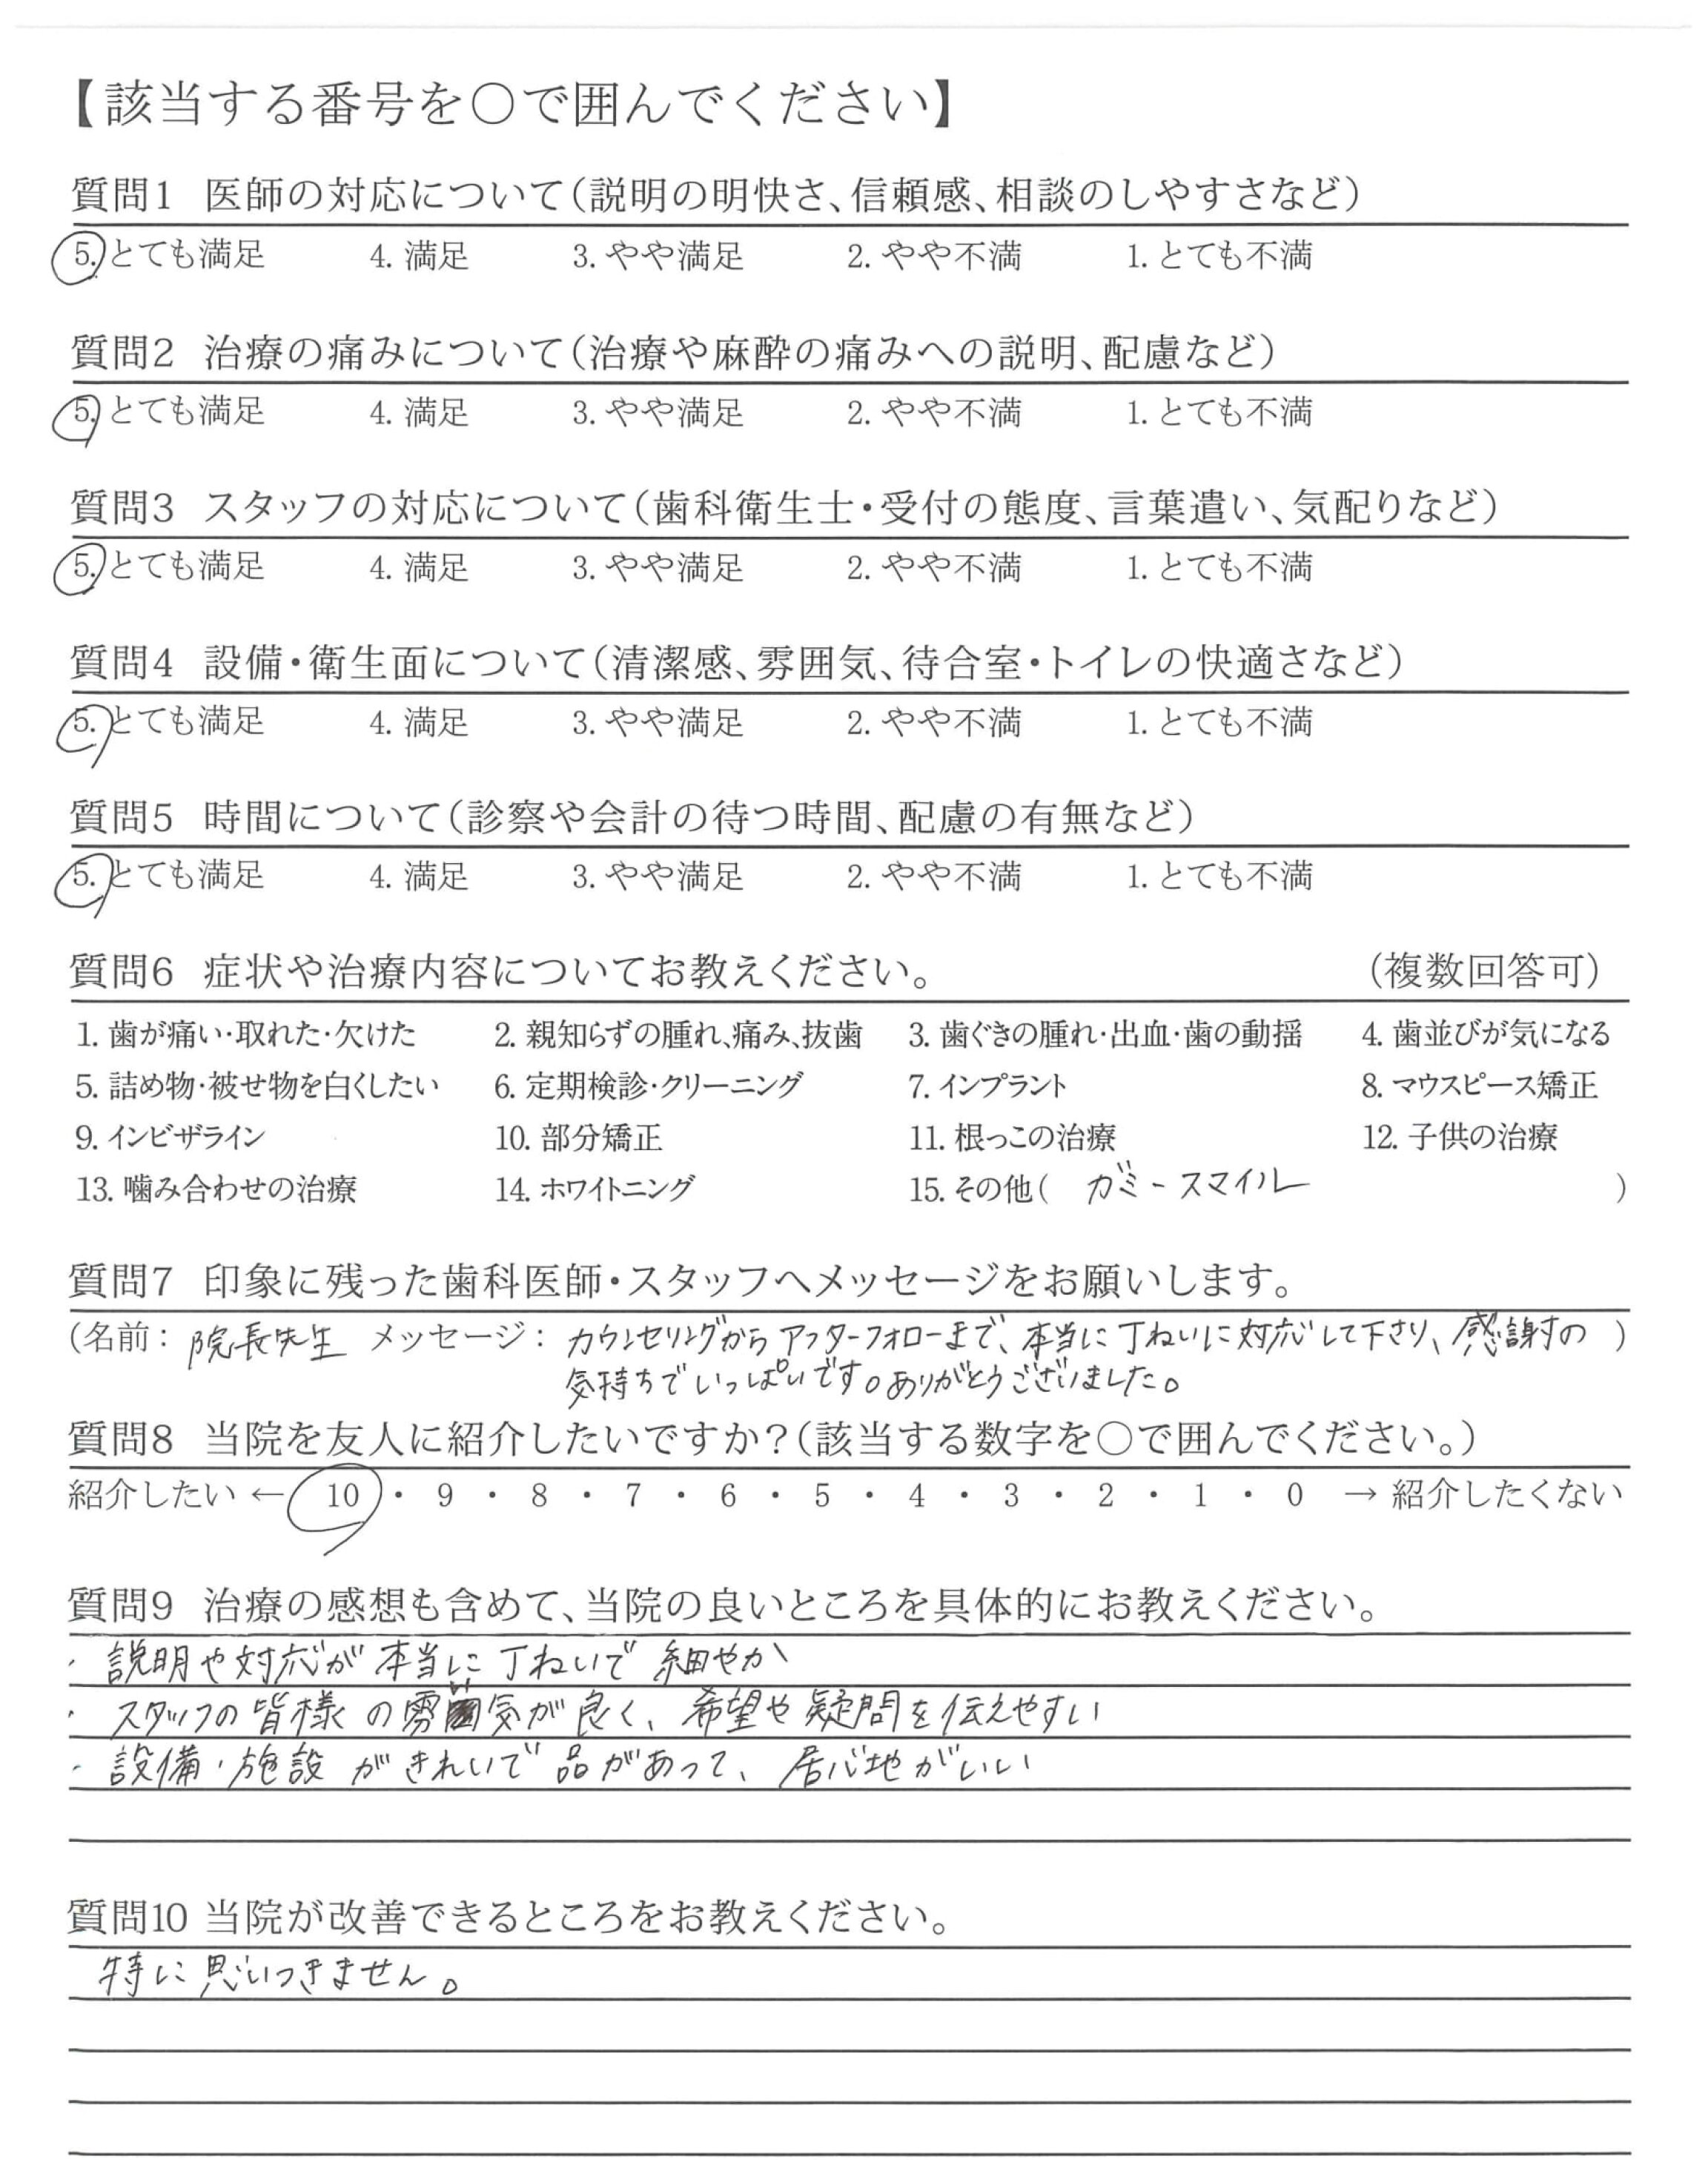 【該当する番号を○で囲んでください】
質問1 医師の対応について(説明の明快さ、信頼感、相談のしやすさなど)
5. とても満足 4. 満足 3. やや満足 2. やや不満 1. とても不満
質問2 治療の痛みについて(治療や麻酔の痛みへの説明、配慮など)
5. とても満足 4. 満足 3. やや満足 2. やや不満 1. とても不満
質問3 スタッフの対応について(歯科衛生士・受付の態度、言葉遣い、気配りなど)
5. とても満足 4. 満足 3. やや満足 2. やや不満 1. とても不満
質問4 設備・衛生面について(清潔感、雰囲気、待合室・トイレの快適さなど)
5. とても満足 4. 満足 3. やや満足 2. やや不満 1. とても不満
質問5 時間について(診察や会計の待つ時間、配慮の有無など)
5. とても満足 4. 満足 3. やや満足 2. やや不満 1. とても不満
質問6 症状や治療内容についてお教えください。 (複数回答可)
1. 歯が痛い・取れた・欠けた 2. 親知らずの腫れ、痛み、抜歯 3. 歯ぐきの腫れ・出血・歯の動揺 4. 歯並びが気になる
5. 詰め物・被せ物を白くしたい 6. 定期検診・クリーニング 7. インプラント 8. マウスピース矯正
9. インビザライン 10. 部分矯正 11. 根っこの治療 12. 子供の治療
13. 噛み合わせの治療 14. ホワイトニング 15. その他( ガミースマイル )
質問7 印象に残った歯科医師・スタッフへメッセージをお願いします。
(名前: 院長先生 メッセージ: カウンセリングからアフターフォローまで、本当に丁ねいに対応して下さり、感謝の )
気持ちでいっぱいです。ありがとうございました。
質問8 当院を友人に紹介したいですか?(該当する数字を○で囲んでください。)
紹介したい ← 10 ・ 9 ・ 8 ・ 7 ・ 6 ・ 5 ・ 4 ・ 3 ・ 2 ・ 1 ・ 0 → 紹介したくない
質問9 治療の感想も含めて、当院の良いところを具体的にお教えください。
・説明や対応が本当に丁ねいで細やか
・スタッフの皆様の雰囲気が良く、希望や疑問を伝えやすい
・設備・施設がきれいで品があって、居心地がいい
質問10 当院が改善できるところをお教えください。
特に思いつきません。